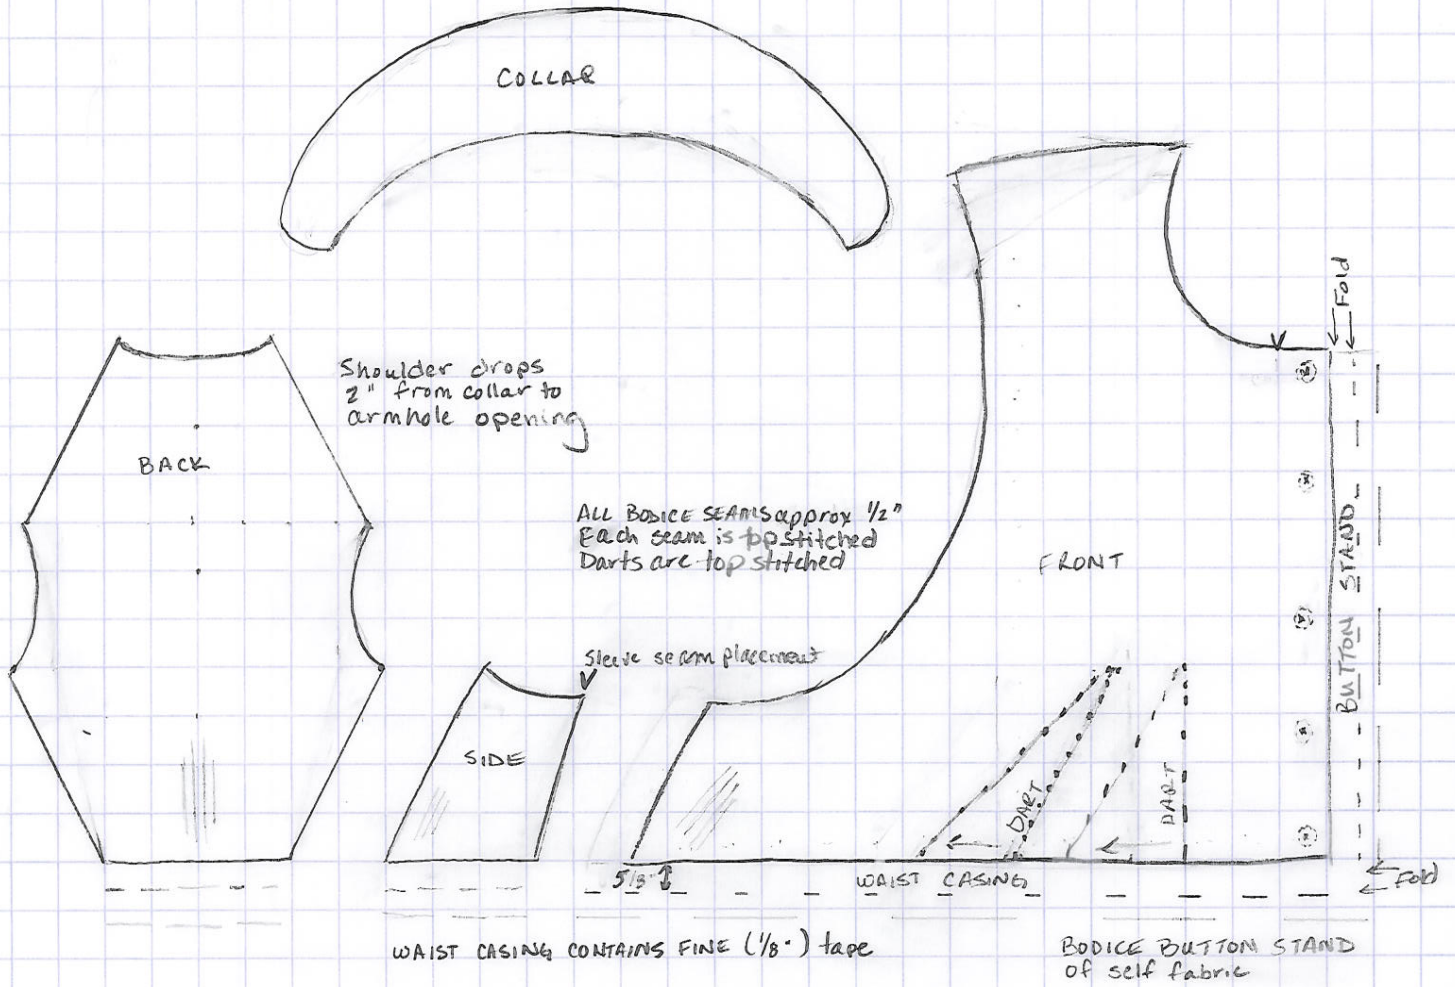 COLLAR
Fold
Shoulder drops
2" from collar to
armhole opening
BACK
ALL BODICE SEAMS approx 1/2"
Each seam is topstitched
Darts are top stitched
FRONT
BUTTON STAND
Sleeve seam placement
SIDE
DART
DART
5/8"
WAIST CASING
Fold
WAIST CASING CONTAINS FINE (1/8") tape
BODICE BUTTON STAND
of self fabric